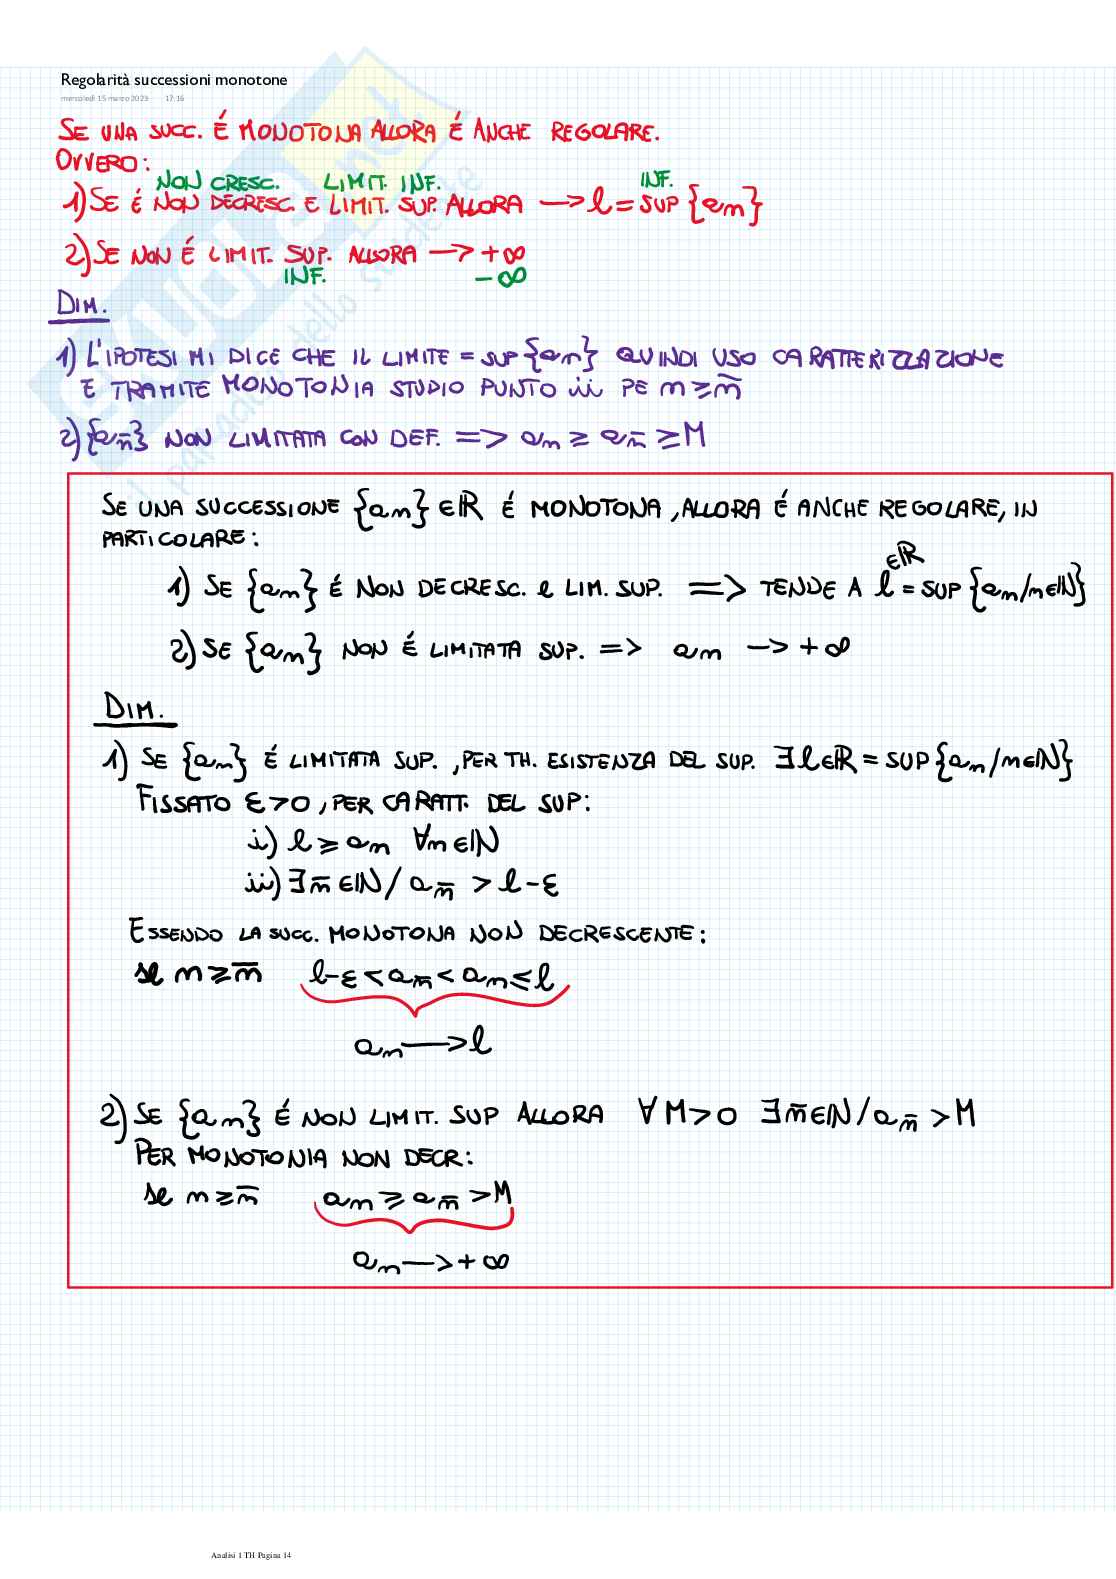 Regolarità successioni monotone
mercoledì 15 marzo 2023 17:16
SE UNA SUCC. É MONOTONA ALLORA É ANCHE REGOLARE.
OVVERO:
NON CRESC. LIMIT. INF. INF.
1) SE É NON DECRESC. E LIMIT. SUP. ALLORA —> l = SUP {an}
2) SE NON É LIMIT. SUP. ALLORA —> +∞
INF. -∞
DIM.
1) L'IPOTESI MI DICE CHE IL LIMITE = SUP {an} QUINDI USO CARATTERIZZAZIONE
E TRAMITE MONOTONIA STUDIO PUNTO ii PE n ≥ n̅
2) {an̅} NON LIMITATA CON DEF. => an ≥ an̅ ≥ M
SE UNA SUCCESSIONE {an} ∈ ℝ É MONOTONA, ALLORA É ANCHE REGOLARE, IN
PARTICOLARE:
1) SE {an} É NON DECRESC. e LIM. SUP. => TENDE A l ∈ℝ = SUP {an/n∈ℕ}
2) SE {an} NON É LIMITATA SUP. => an —> +∞
DIM.
1) SE {an} É LIMITATA SUP., PER TH. ESISTENZA DEL SUP. ∃ l∈ℝ = SUP {an/n∈ℕ}
FISSATO ε>0, PER CARATT. DEL SUP:
i) l ≥ an ∀n∈ℕ
ii) ∃ n̅ ∈ℕ / an̅ > l - ε
ESSENDO LA SUCC. MONOTONA NON DECRESCENTE:
se n ≥ n̅ l - ε < an̅ < an ≤ l
an —> l
2) SE {an} É NON LIMIT. SUP ALLORA ∀ M>0 ∃ n̅∈ℕ / an̅ > M
PER MONOTONIA NON DECR:
se n ≥ n̅ an ≥ an̅ > M
an —> +∞
Analisi 1 TH Pagina 14